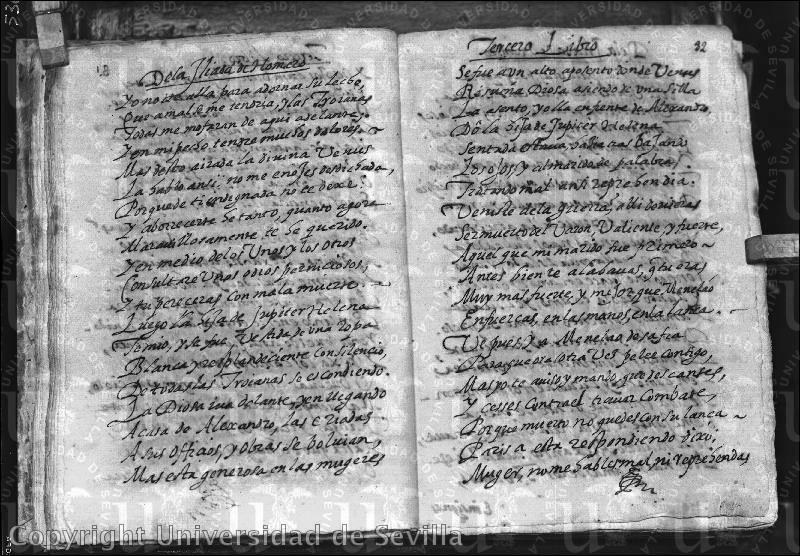 De la Iliada de Homero
Yo no ire alla para adornar su lecho,
Que a mal se me tendria, y las Troianas
Todas me mofaran de aqui adelante,
Y en mi pecho tendre muchos dolores.
Mas desto airada la divina Venus
La hablo ansi: no me enojes desdichada,
Porque de ti ensañada no te dexe:
Y aborrecerte he tanto, quanto agora
Marauillosamente te he querido.
Y en medio de los Unos y los otros
Consultare Unos odios perniciosos,
Y tu pereceras con mala muerte.
Luego la hija de Jupiter Helena
Temio, y se fue, Vestida de una ropa
Blanca y resplandeciente con silencio,
De todas las Troianas se escondiendo.
La Diosa iua delante, y en llegando
A casa de Alexandro, las criadas
A sus officios, y obras se boluian,
Mas esta generosa en las mugeres
Tercero Libro
32
Se fue a un alto aposento donde Venus
Risueña Diosa asiendo de una silla
La asento, y ella enfrente de Alexandro,
Do la hija de Jupiter Helena
Sentada estaua, hazia tras bajando
Los ojos y al marido de palabras
Tratando mal ansi reprehendia.
Veniste de la guerra, alli douieras
Ser muerto del Varon Valiente y fuerte,
Aquel que mi marido fue primero
Antes bien te alabauas, q tu eras
Muy mas fuerte, y mejor que Menelao
En fuercas, en las manos, en la lanca.
Ve pues, y a Menelao desafia
Para que otra Vez pelee contigo,
Mas yo te auiso y mando que descanses,
Y cesses contra el trauar combate,
Porque muerto no quedes con su lanca
Paris a esta respondiendo dixo:
Muger, no me hables mal, ni reprehendas
Copyright Universidad de Sevilla